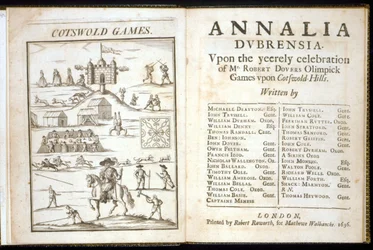 COTSWOLD GAMES.
ANNALIA
DVBRENSIA.
Vpon the yeerely celebration
of Mr. ROBERT DOVERS Olimpick
Games vpon Cotswold-Hills.
Written by
MICHAELL DRAYTON. Esq.
IOHN TRVSSELL. Gent.
WILLIAM DVRHAM. Oxon.
WILLIAM DENNY. Esq.
THOMAS RANDALL. Cant.
BEN: IOHNSON.
IOHN DOVER. Gent.
OWEN FELTHAM. Gent.
FRANCIS IZOD. Gent.
NICHOLAS WALLINGTON. Ox.
IOHN BALLARD. Oxon.
TIMOTHY OGLE. Gent.
WILLIAM AMBROSE. Oxon.
WILLIAM BELLAS. Gent.
THOMAS COLE. Oxon.
WILLIAM BASSE. Gent.
CAPTAINE MENESE
IOHN TRVSSELL. Gent.
WILLIAM COLE. Gent.
FERRIMAN RVTTER. Oxon.
IOHN STRATFORD. Gent.
THOMAS SANFORD. Gent.
ROBERT GRIFFIN. Gent.
IOHN COLE. Gent.
ROBERT DVRHAM. Oxon.
A SIRINX Oxon
IOHN MONSON. Esq.
WALTON POOLE. Gent.
RICHARD WELLS. Oxon.
WILLIAM FORTH. Esq.
SHACK: MARMYON. Gent.
R. N.
THOMAS HEYWOOD. Gent.
LONDON,
Printed by Robert Raworth, for Mathewe Walbancke. 1636.